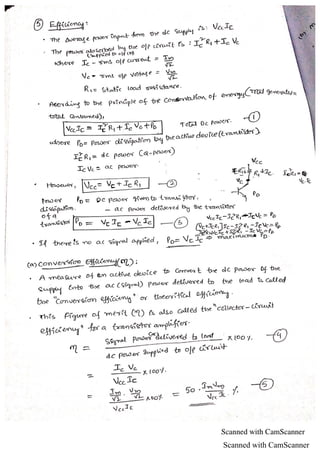 ⑤ Efficiency:
• The average power input from the dc supply is: VccIc
• The power absorbed by the o/p circuit is: Ic²R1 + Ic Vc
(supplied to o/p ckt)
where Ic - rms o/p current = Im/√2
Vc - rms o/p voltage = Vm/√2
R1 = static load resistance.
• According to the principle of the Conservation of energy (Total generated =
total consumed),
VccIc = Ic²R1 + Ic Vc + PD — ①
Total DC power.
where PD = Power dissipation by the active device (transistor).
Ic²R1 = dc power (Q-power)
IcVc = ac power.
• However, Vcc = VC + Ic R1 — ②
Power dissipation of a transistor
PD = DC power given to transistor.
- ac power delivered by the transistor
PD = VC IC - Vc Ic — ③
• If there is no ac signal applied, PD = VC IC = maximum PD.
(a) Conversion Efficiency (η):
• A measure of an active device to convert the dc power of the
supply into the ac (signal) power delivered to the load is called
the "Conversion efficiency" or theoritical efficiency.
• This Figure of merit (η) is also called the "collector-circuit
efficiency" for a transistor amplifier.
η = Signal power delivered to load / dc power supplied to o/p circuit × 100 %. — ④
= Ic Vc / Vcc Ic × 100%.
= Im/√2 · Vm/√2 / VccIc × 100% = 50 · ImVm / Vcc Ic %. — ⑤
Scanned with CamScanner
Scanned with CamScanner